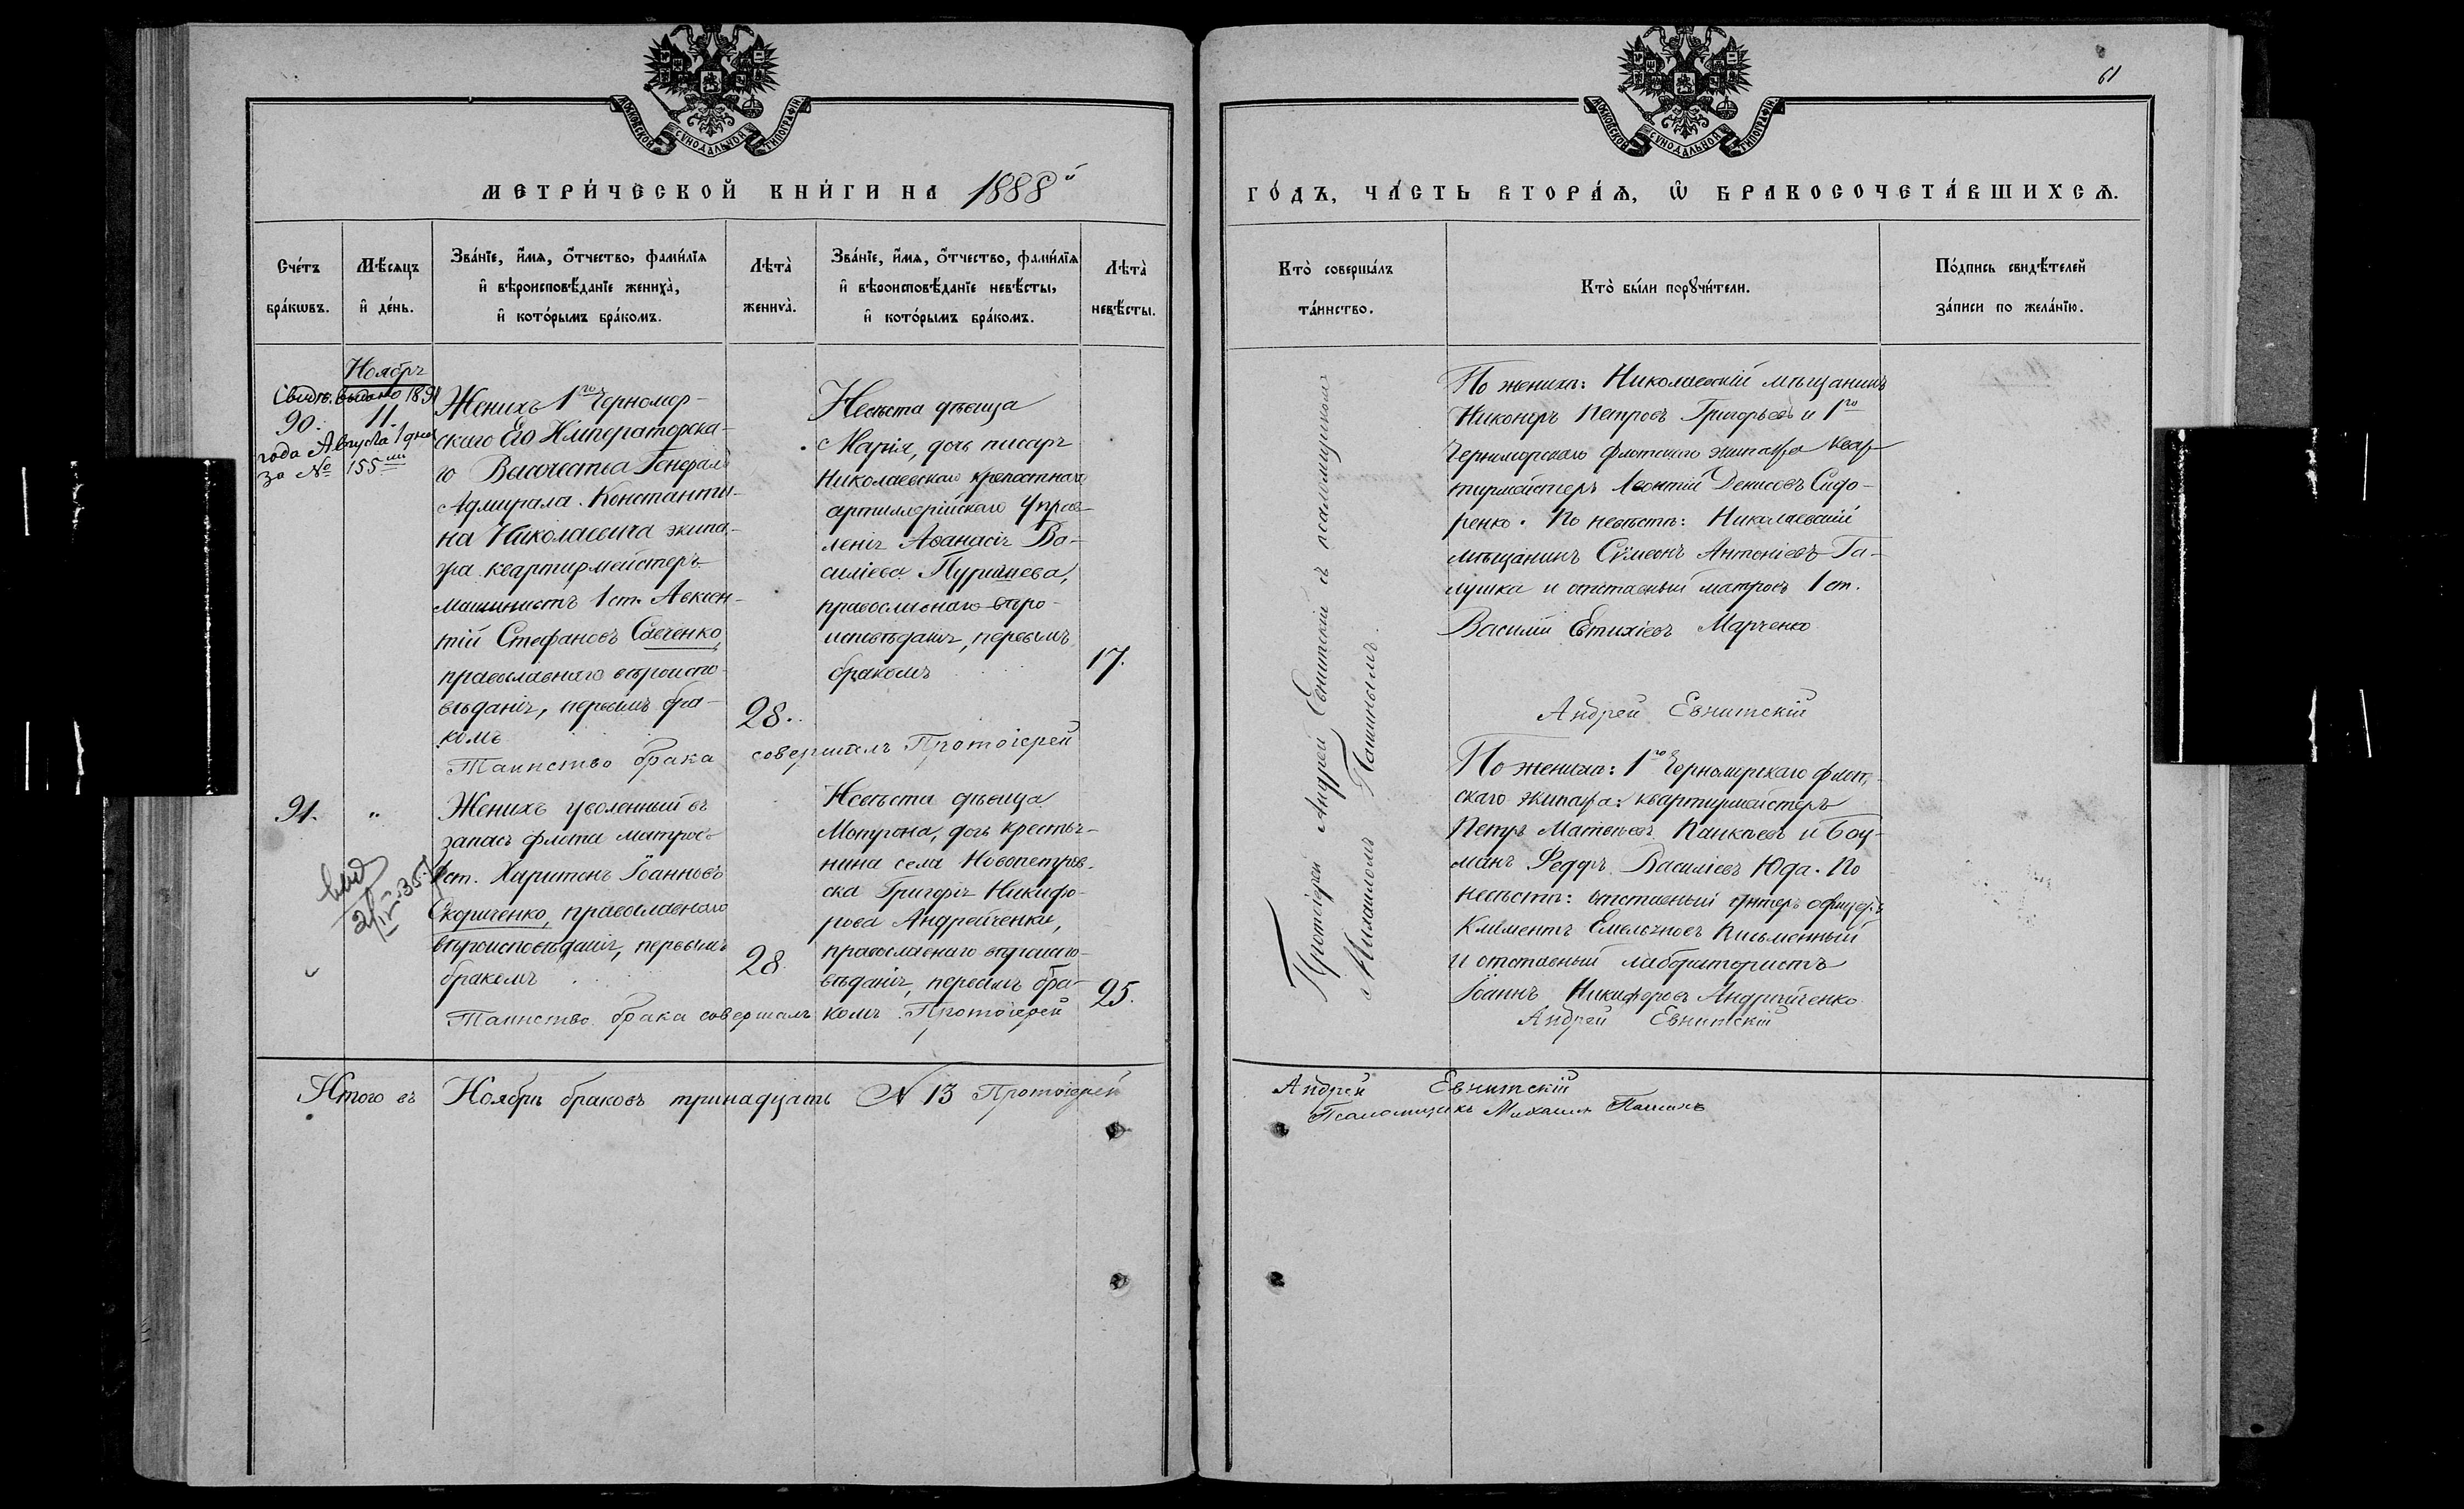 МОСКОВСКОЙ СѴНОДАЛЬНОЙ ТИПОГРАФІИ
МЕТРИ́ЧЕСКОЙ КНИ́ГИ НА 1888 й
Сче́тъ бра́кωвъ.
Мѣ́сяцъ и҆ де́нь.
Зва́нїе, и҆́мѧ, ѻ҆́тчество, фами́лїѧ
и҆ вѣроисповѣ́данїе жениха̀,
и҆ кото́рымъ бра́комъ.
Лѣта̀ жениха̀.
Зва́нїе, и҆́мѧ, ѻ҆́тчество, фами́лїѧ
и҆ вѣроисповѣ́данїе невѣ́сты,
и҆ кото́рымъ бра́комъ.
Лѣта̀ невѣ́сты.
Ноябрь
Свид. выдано 1891
90. 11.
года Августа 1 дня
за № 155
Женихъ 1го Черномор-
скаго Его Императорска-
го Высочества Генералъ
Адмирала Константи-
на Николаевича экипа-
жа квартирмейстеръ
машинистъ 1 ст. Авксен-
тій Стефановъ Савченко,
православнаго вѣроиспо-
вѣданія, первымъ бра-
комъ
28.
Невѣста дѣвица
Марія, дочь писаря
Николаевскаго крѣпостнаго
артиллерійскаго Управ-
ленія Аѳанасія Ва-
силіева Пуришева,
православнаго вѣро-
исповѣданія, первымъ
бракомъ
17.
Таинство брака совершалъ Протоіерей
91. "
Женихъ уволенный въ
запасъ флота матросъ
1 ст. Харитонъ Іоанновъ
Скориченко, православнаго
вѣроисповѣданія, первымъ
бракомъ
28.
Невѣста дѣвица
Мотрона, дочь крестья-
нина села Новопетров-
ска Григорія Никифо-
рова Андрейченки,
православнаго вѣроиспо-
вѣданія, первымъ бра-
комъ
25.
Таинство брака совершалъ Протоіерей
Итого въ Ноябрѣ браковъ тринадцать № 13 Протоіерей
61
МОСКОВСКОЙ СѴНОДАЛЬНОЙ ТИПОГРАФІИ
ГО́ДЪ, ЧА́СТЬ ВТОРА́Ѧ, Ѡ҆ БРАКОСОЧЕТА́ВШИХСѦ.
Кто̀ соверша́лъ
та́инство.
Кто̀ бы́ли порꙋчи́тели.
По́дпись свидѣ́телей
за́писи по жела́нїю.
Протоіерей Андрей Евнитскій съ псаломщикомъ
Михаиломъ Пашинымъ.
По женихѣ: Николаевскій мѣщанинъ
Никоноръ Петровъ Григорьевъ и 1го
Черноморскаго флотскаго экипажа квар-
тирмейстеръ Леонтій Денисовъ Сидо-
ренко. По невѣстѣ: Николаевскій
мѣщанинъ Сѵмеонъ Антоніевъ Га-
лушка и отставный матросъ 1 ст.
Василій Евтихіевъ Марченко
Андрей Евнитскій
По женихѣ: 1го Черноморскаго флот-
скаго экипажа: квартирмейстеръ
Петръ Матвѣевъ Панкѣевъ и Боц-
манъ Ѳедоръ Василіевъ Юда. По
невѣстѣ: отставный унтеръ офицеръ
Климентъ Емельяновъ Письменный
и отставный лаборатористъ
Іоаннъ Никифоровъ Андрейченко
Андрей Евнитскій
Андрей Евнитскій
Псаломщикъ Михаилъ Пашинъ